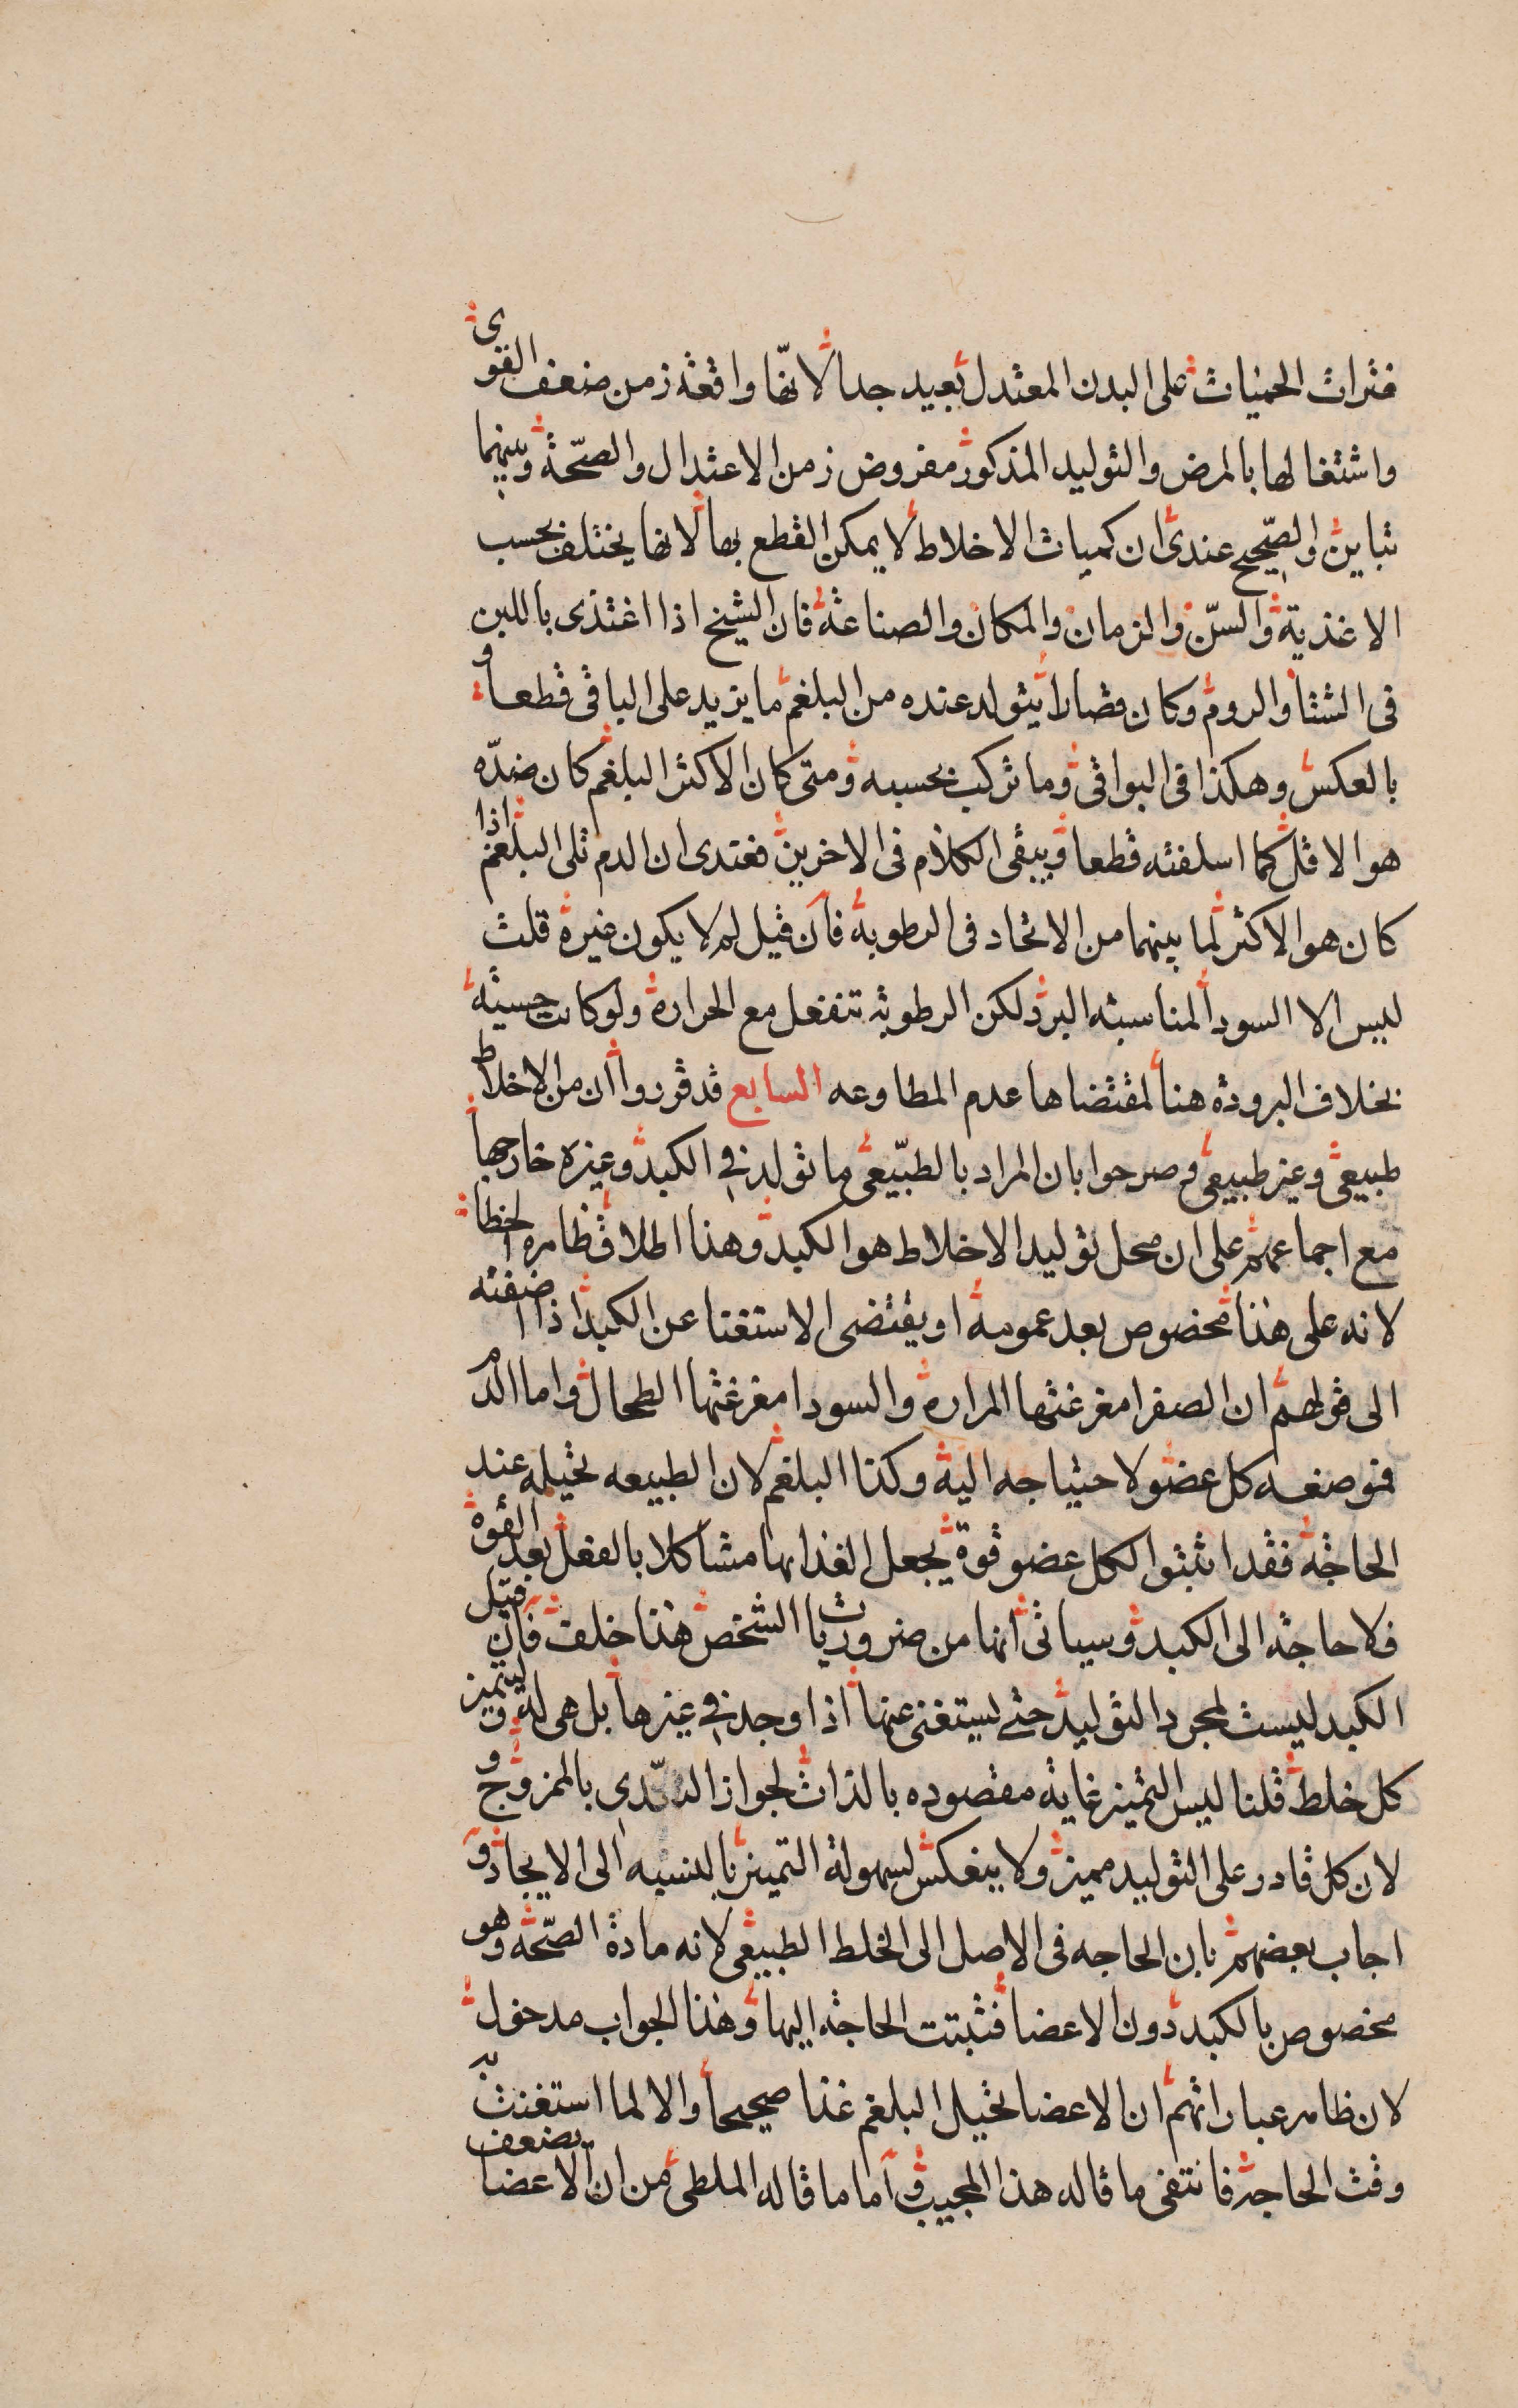 فترات الحميات على البدن المعتدل بعيد جدا لانها واقعة زمن ضعف القوى
واشتغالها بالمرض والتوليد المذكور مفروض زمن الاعتدال والصحة وبينهما
تباين والصحيح عندى ان كميات الاخلاط لا يمكن القطع بها لانها يختلف بحسب
الاغذية والسن والزمان والمكان والصناعة فان الشيخ اذا اغتذى باللبن
فى الشتا والروم وكان قصارا يتولد عنده من البلغم ما يزيد على الباقى قطعا و
بالعكس وهكذا فى البواقى وما تركب بحسبه ومتى كان الاكثر البلغم كان ضده
هو الاقل كما اسلفته قطعا ويبقى الكلام فى الاخرين فعندى ان الدم تلى البلغم اذا
كان هو الاكثر لما بينهما من الاتحاد فى الرطوبة فان قيل لم لا يكون غيره قلت
ليس الا السودا لمناسبته البرد لكن الرطوبة تنفعل مع الحرارة ولو كانت حسية
بخلاف البرودة هنا لمقتضاها عدم المطاوعه السابع قد قرروا ان من الاخلاط
طبيعى وغير طبيعى وصرحوا بان المراد بالطبيعى ما تولد فى الكبد وغيره خارجها
مع اجماعهم على ان محل توليد الاخلاط هو الكبد وهذا اطلاق ظاهره الخطا
لانه على هذا مخصوص بعد عمومه او يقتضى الاستغنا عن الكبد اذا اضفته
الى قولهم ان الصفرا مفرغتها المرارة والسودا مفرغتها الطحال واما الدم
فموضعه كل عضو لاحتياجه اليه وكذا البلغم لان الطبيعه تحيله عند
الحاجة فقد اثبتوا لكل عضو قوة يجعل الغذا بها مشاكلا بالفعل بعد القوة
فلا حاجة الى الكبد وسياتى انها من ضروريات الشخص هذا خلف فان قيل
الكبد ليست لمجرد التوليد حتى يستغنى عنها اذا وجد فى غيرها بل هى له ولتميز
كل خلط قلنا ليس التميز غاية مقصوده بالذات لجواز التغدى بالممزوج و
لان كل قادر على التوليد مميز ولا ينعكس لسهولة التميز بالنسبه الى الايجاد و
اجاب بعضهم بان الحاجه فى الاصل الى الخلط الطبيعى لانه مادة الصحة وهو
مخصوص بالكبد دون الاعضا فثبتت الحاجة اليها وهذا الجواب مدخول
لان ظاهر عباراتهم ان الاعضا تحيل البلغم غذا صحيحا والا لما استغنت به
وقت الحاجة فانتفى ما قاله هذا المجيب واما ما قاله الملطى من ان الاعضا يضعف